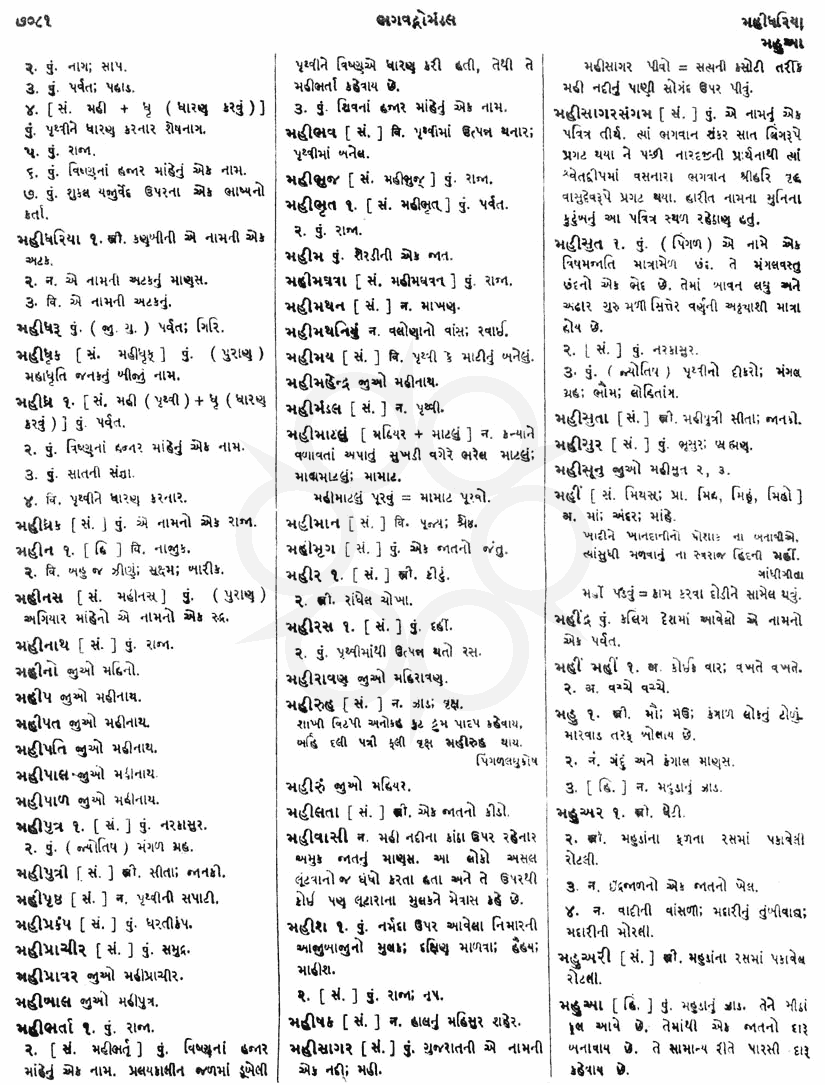 ૭૦૮૧
ભગવદ્ગોમંડલ
મહીધરિયા
મહુઆ
૨. પું. નાગ; સાપ.
૩. પું. પર્વત; પહાડ.
૪. [ સં. મહી + ધૃ ( ધારણ કરવું ) ]
પું. પૃથ્વીને ધારણ કરનાર શેષનાગ.
૫. પું. રાજા.
૬. પું. વિષ્ણુનાં હજાર માંહેનું એક નામ.
૭. પું. શુકલ યજુર્વેદ ઉપરના એક ભાષ્યનો
કર્તા.
મહીધરિયા ૧. સ્ત્રી. કણબીની એ નામની એક
અટક.
૨. ન. એ નામની અટકનું માણસ.
૩. વિ. એ નામની અટકનું.
મહીધરૂ પું. ( જૂ. ગુ. ) પર્વત; ગિરિ.
મહીધૃક [ સં. મહીધૃક્ ] પું. ( પુરાણ )
મહાધૃતિ જનકનું બીજું નામ.
મહીધ્ર ૧. [ સં. મહી ( પૃથ્વી ) + ધૃ ( ધારણ
કરવું ) ] પું. પર્વત.
૨. પું. વિષ્ણુનાં હજાર માંહેનું એક નામ.
૩. પું. સાતની સંજ્ઞા.
૪. વિ. પૃથ્વીને ધારણ કરનાર.
મહીધ્રક [ સં. ] પું. એ નામનો એક રાજા.
મહીન ૧. [ હિં ] વિ. નાજુક.
૨. વિ. બહુ જ ઝીણું; સૂક્ષ્મ; બારીક.
મહીનસ [ સં. મહીનસ્ ] પું. ( પુરાણ )
અગિયાર માંહેનો એ નામનો એક રુદ્ર.
મહીનાથ [ સં. ] પું. રાજા.
મહીનો જુઓ મહિનો.
મહીપ જુઓ મહીનાથ.
મહીપત જુઓ મહીનાથ.
મહીપતિ જુઓ મહીનાથ.
મહીપાલ જુઓ મહીનાથ.
મહીપાળ જુઓ મહીનાથ.
મહીપુત્ર ૧. [ સં. ] પું. નરકાસુર.
૨. પું. ( જ્યોતિષ ) મંગળ ગ્રહ.
મહીપુત્રી [ સં. ] સ્ત્રી. સીતા; જાનકી.
મહીપૃષ્ઠ [ સં. ] ન. પૃથ્વીની સપાટી.
મહીપ્રકંપ [ સં. ] પું. ધરતીકંપ.
મહીપ્રાચીર [ સં. ] પું. સમુદ્ર.
મહીપ્રાવર જુઓ મહીપ્રાચીર.
મહીબાલ જુઓ મહીપુત્ર.
મહીભર્તા ૧. પું. રાજા.
૨. [ સં. મહીભર્તૃ ] પું. વિષ્ણુનાં હજાર
માંહેનું એક નામ. પ્રલયકાલીન જળમાં ડૂબેલી
પૃથ્વીને વિષ્ણુએ ધારણ કરી હતી, તેથી તે
મહીભર્તા કહેવાય છે.
૩. પું. શિવનાં હજાર માંહેનું એક નામ.
મહીભવ [ સં. ] વિ. પૃથ્વીમાં ઉત્પન્ન થનાર;
પૃથ્વીમાં બનેલ.
મહીભુજ [ સં. મહીભુજ્ ] પું. રાજા.
મહીભૃત ૧. [ સં. મહીભૃત્ ] પું. પર્વત.
૨. પું. રાજા.
મહીમ પું. શેરડીની એક જાત.
મહીમઘવા [ સં. મહીમઘવન્ ] પું. રાજા.
મહીમથન [ સં. ] ન. માખણ.
મહીમથનિયું ન. વલોણાનો વાંસ; રવાઈ.
મહીમય [ સં. ] વિ. પૃથ્વી કે માટીનું બનેલું.
મહીમહેન્દ્ર જુઓ મહીનાથ.
મહીમંડલ [ સં. ] ન. પૃથ્વી.
મહીમાટલું [ મહિયર + માટલું ] ન. કન્યાને
વળાવતાં અપાતું સુખડી વગેરે ભરેલ માટલું;
માદ્યમાટલું; મામાટ.
મહીમાટલું પૂરવું = મામાટ પૂરવો.
મહીમાન [ સં. ] વિ. પૂજ્ય; શ્રેષ્ઠ.
મહીમૃગ [ સં. ] પું. એક જાતનો જંતુ.
મહીર ૧. [ સં. ] સ્ત્રી. કીટું.
૨. સ્ત્રી. રાંધેલ ચોખા.
મહીરસ ૧. [ સં. ] પું. દહીં.
૨. પું. પૃથ્વીમાંથી ઉત્પન્ન થતો રસ.
મહીરાવણ જુઓ મહિરાવણ.
મહીરુહ [ સં. ] ન. ઝાડ; વૃક્ષ.
શાખી વિટપી અનોકહ કુટ દ્રુમ પાદપ કહેવાય,
બર્હિ દલી પત્રી ફલી વૃક્ષ મહીરુહ થાય.
પિંગળલઘુકોષ
મહીરું જુઓ મહિયર.
મહીલતા [ સં. ] સ્ત્રી. એક જાતનો કીડો.
મહીવાસી ન. મહી નદીના કાંઠા ઉપર રહેનાર
અમુક જાતનું માણસ. આ લોકો અસલ
લૂંટવાનો જ ધંધો કરતા હતા અને તે ઉપરથી
કોઈ પણ લૂટારાના મુલકને મેવાસ કહે છે.
મહીશ ૧. પું. નર્મદા ઉપર આવેલા નિમારની
આજુબાજુનો મુલક; દક્ષિણ માળવા; હૈહય;
માહીશ.
૨. [ સં. ] પું. રાજા; નૃપ.
મહીષક [ સં. ] ન. હાલનું મહિસુર શહેર.
મહીસાગર [ સં. ] પું. ગુજરાતની એ નામની
એક નદી; મહી.
મહીસાગર પીવો = સત્યની કસોટી તરીકે
મહી નદીનું પાણી સોગંદ ઉપર પીવું.
મહીસાગરસંગમ [ સં. ] પું. એ નામનું એક
પવિત્ર તીર્થ. ત્યાં ભગવાન શંકર સાત લિંગરૂપે
પ્રગટ થયા ને પછી નારદજીની પ્રાર્થનાથી ત્યાં
શ્વેતદ્વીપમાં વસનારા ભગવાન શ્રીહરિ વૃદ્ધ
વાસુદેવરૂપે પ્રગટ થયા. હારીત નામના મુનિના
કુટુંબનું આ પવિત્ર સ્થળ રહેઠાણ હતું.
મહીસુત ૧. પું. ( પિંગળ ) એ નામે એક
વિષમજાતિ માત્રામેળ છંદ. તે મંગલવસ્તુ
છંદનો એક ભેદ છે. તેમાં બાવન લઘુ અને
અઢાર ગુરુ મળી સિત્તેર વર્ણની અઠ્યાશી માત્રા
હોય છે.
૨. [ સં. ] પું. નરકાસુર.
૩. પું. ( જ્યોતિષ ) પૃથ્વીનો દીકરો; મંગલ
ગ્રહ; ભૌમ; લોહિતાંગ.
મહીસુતા [ સં. ] સ્ત્રી. મહીપુત્રી સીતા; જાનકી.
મહીસુર [ સં. ] પું. ભૂસુર; બ્રાહ્મણ.
મહીસૂનુ જુઓ મહીસુત ૨, ૩.
મહીં [ સં. મિયસ; પ્રા. મિહ, મિહું, મિહો ]
અ. માં; અંદર; માંહે.
ખાદીને ખાનદાનીનો પોશાક ના બનાવીએ,
ત્યાંસુધી મળવાનું ના સ્વરાજ હિંદની મહીં.
ગાંધીગીતા
મહીં પડવું = કામ કરવા દોડીને સામેલ થવું.
મહીંદ્ર પું. કલિંગ દેશમાં આવેલો એ નામનો
એક પર્વત.
મહીં મહીં ૧. અ. કોઈક વાર; વખતે વખતે.
૨. અ. વચ્ચે વચ્ચે.
મહુ ૧. સ્ત્રી. મૌ; મઉ; કંગાળ લોકનું ટોળું.
મારવાડ તરફ બોલાય છે.
૨. ન. ગંદું અને કંગાલ માણસ.
૩. [ હિં. ] ન. મહુડાનું ઝાડ.
મહુઅર ૧. સ્ત્રી. ઘેટી.
૨. સ્ત્રી. મહુડાંના ફળના રસમાં પકાવેલી
રોટલી.
૩. ન. ઇંદ્રજાળનો એક જાતનો ખેલ.
૪. ન. વાદીની વાંસળી; મદારીનું તુંબીવાદ્ય;
મદારીની મોરલી.
મહુઅરી [ સં. ] સ્ત્રી. મહુડાંના રસમાં પકાવેલ
રોટલી.
મહુઆ [ હિં. ] પું. મહુડાનું ઝાડ. તેને મીઠાં
ફૂલ આવે છે. તેમાંથી એક જાતનો દારૂ
બનાવાય છે. તે સામાન્ય રીતે પારસી દારૂ
કહેવાય છે.